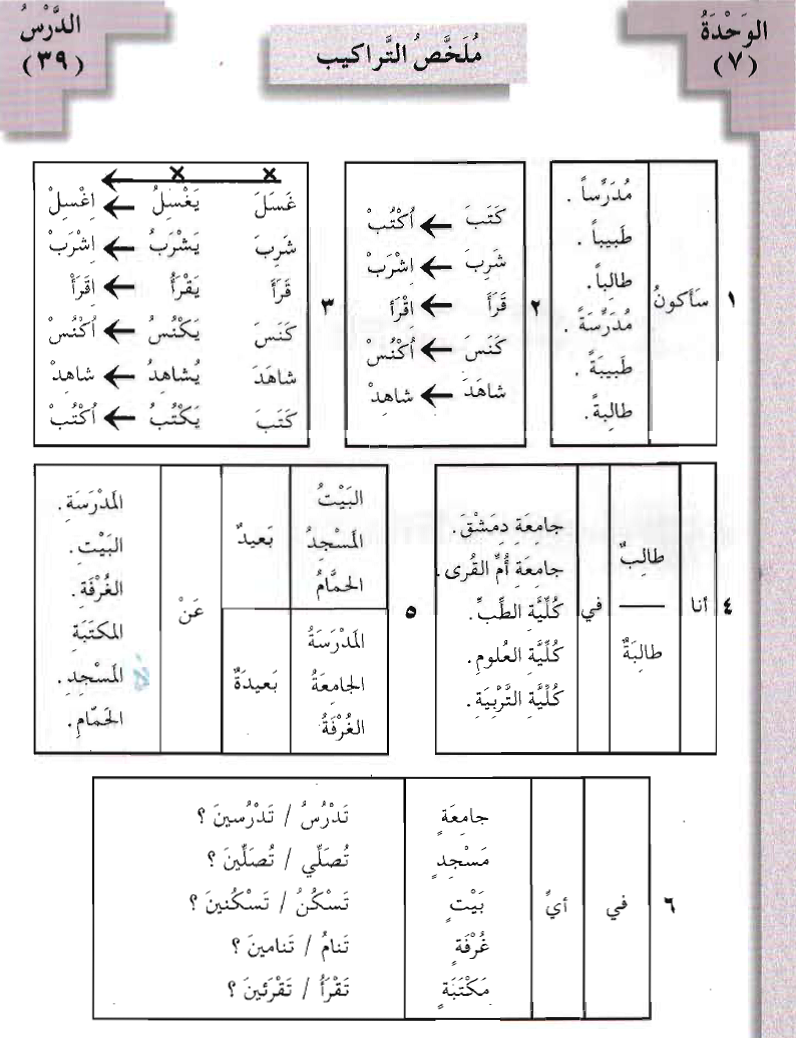 الوَحْدَةُ
(٧)
مُلَخَّصُ التَّراكيب
الدَّرْسُ
(٣٩)
١
سَأَكونُ
مُدَرِّساً .
طَبيباً .
طالِباً.
مُدَرِّسَةً .
طَبيبَةً .
طالِبةً.
٢
كَتَبَ ← اُكْتُبْ
شَرِبَ ← اِشْرَبْ
قَرَأَ ← اِقْرَأ
كَنَسَ ← اُكْنُسْ
شاهَدَ ← شاهِدْ
٣
× ×
غَسَلَ يَغْسِلُ ← اِغْسِلْ
شَرِبَ يَشْرَبُ ← اِشْرَبْ
قَرَأَ يَقْرَأُ ← اِقْرَأْ
كَنَسَ يَكْنُسُ ← اُكْنُسْ
شاهَدَ يُشاهِدُ ← شاهِدْ
كَتَبَ يَكْتُبُ ← اُكْتُبْ
٤
أنا
طالِبٌ
طالِبَةٌ
في
جامِعَة دِمَشْقَ.
جامِعَة أُمِّ القُرى.
كُلِّيَّةِ الطِّبِّ.
كُلِّيَّةِ العُلومِ.
كُلِّيَّةِ التَّرْبِيَةِ.
٥
البَيْتُ
المَسْجِدُ
الحَمّامُ
بَعيدٌ
المَدْرَسَةُ
الجامِعَةُ
الغُرْفَةُ
بَعيدَةٌ
عَنْ
المَدْرَسَةِ.
البَيْتِ.
الغُرْفَةِ.
المكتَبَةِ
المَسْجِدِ.
الحَمّامِ.
٦
في
أيِّ
جامِعَةٍ
مَسْجِدٍ
بَيْتٍ
غُرْفَةٍ
مَكْتَبَةٍ
تَدْرُسُ / تَدْرُسينَ ؟
تُصَلّي / تُصَلّينَ ؟
تَسْكُنُ / تَسْكُنينَ ؟
تَنامُ / تَنامينَ ؟
تَقْرَأُ / تَقْرَئينَ ؟